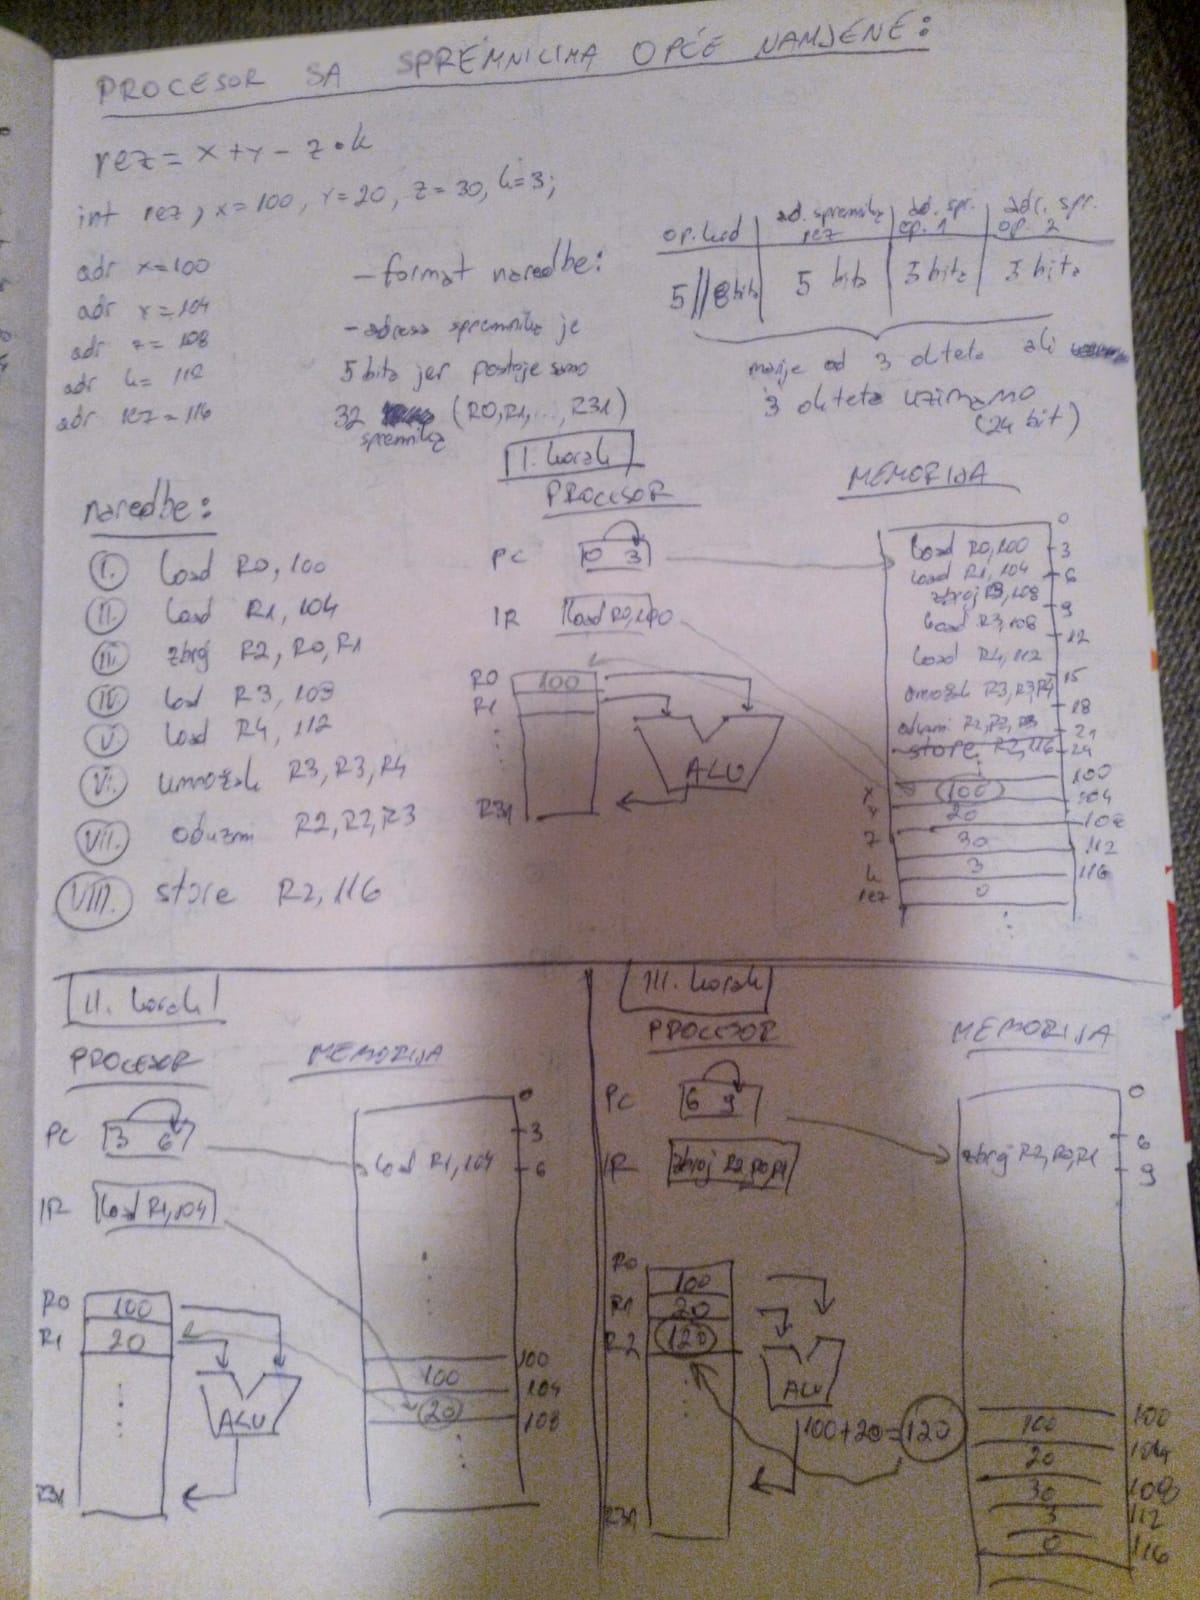 PROCESOR SA SPREMNICIMA OPĆE NAMJENE:
rez = x + y - z • k
int rez, x = 100, y = 20, z = 30, k = 3;
adr x = 100
adr y = 104
adr z = 108
adr k = 112
adr rez = 116
- format naredbe:
- adresa spremnika je
5 bita jer postoje samo
32 (R0, R1, ..., R31)
spremnika
op. kod | ad. spremnika rez | ad. spr. op. 1 | adr. spr. op. 2
5 // 8 bita | 5 bita | 5 bita | 5 bita
manje od 3 okteta ali
3 okteta uzimamo
(24 bit)
naredbe:
I. load R0, 100
II. load R1, 104
III. zbroj R2, R0, R1
IV. load R3, 108
V. load R4, 112
VI. umnožak R3, R3, R4
VII. oduzmi R2, R2, R3
VIII. store R2, 116
I. korak
PROCESOR
PC 0 3
IR load R0, 100
R0 100
R1
R31
ALU
MEMORIJA
0
load R0, 100 3
load R1, 104 6
9
load R3, 108 12
load R4, 112 15
umnožak R3, R3, R4 18
oduzmi R2, R2, R3 21
store R2, 116 24
100
x 100 104
y 20 108
z 30 112
k 3 116
rez 0
II. korak
PROCESOR
PC 3 6
IR load R1, 104
R0 100
R1 20
R31
ALU
MEMORIJA
0
3
load R1, 104 6
100
100 104
20 108
III. korak
PROCESOR
PC 6 9
IR zbroj R2, R0, R1
R0 100
R1 20
R2 120
R31
ALU
100 + 20 = 120
MEMORIJA
0
6
zbroj R2, R0, R1 9
100
100 104
20 108
30 112
3 116
0